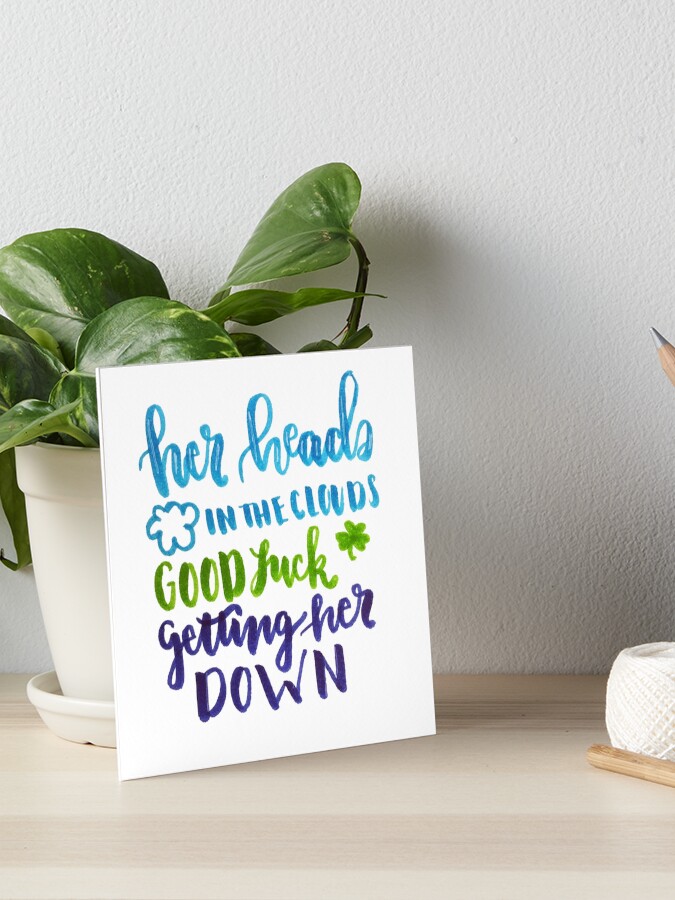 her heads
IN THE CLOUDS
GOOD luck
getting her
DOWN